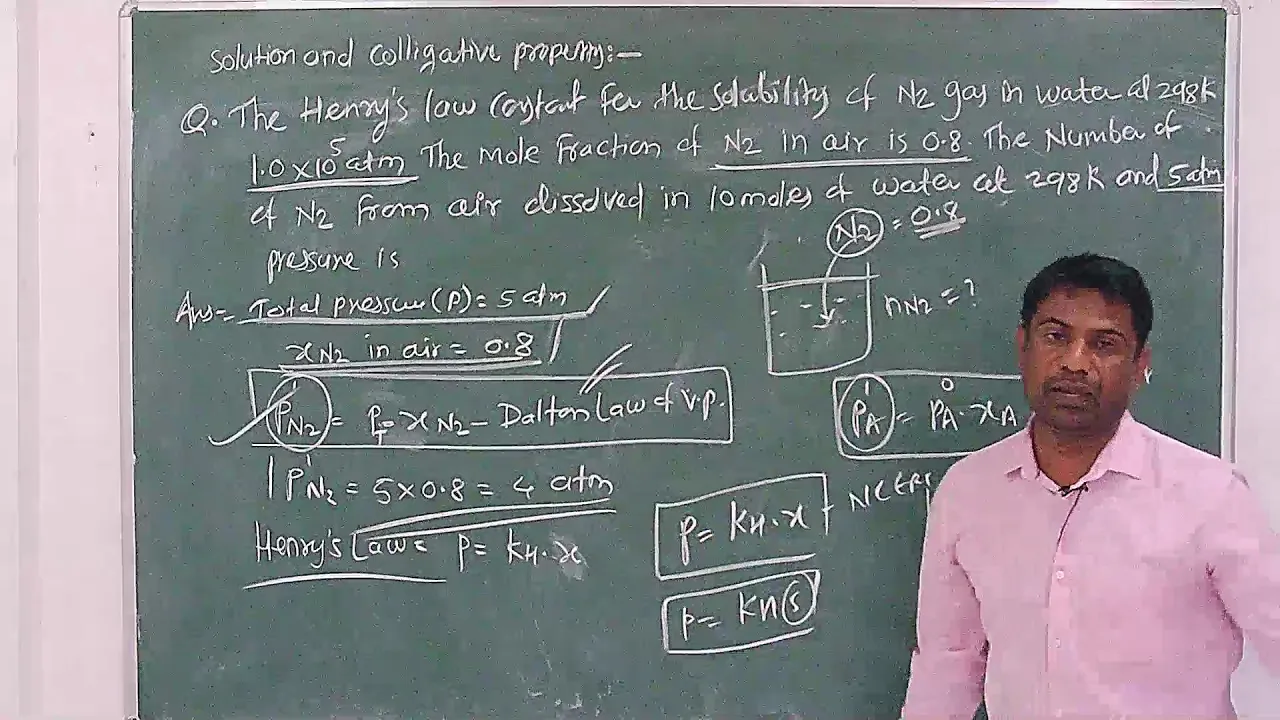 Solution and colligative property:-
Q. The Henry's law constant for the solubility of N2 gas in water at 298K
1.0×10⁵ atm The mole fraction of N2 in air is 0.8. The Number of
of N2 from air dissolved in 10 moles of water at 298K and 5 atm
pressure is
N2 = 0.8
nN2 = ?
Ans- Total pressure (P) = 5 atm
xN2 in air = 0.8
PN2 = PT · xN2 - Dalton Law of V.P.
PA = P°A · xA
PN2 = 5×0.8 = 4 atm
Henry's Law = P = KH·x
P = KH·x - NCERT
P = KH(S)